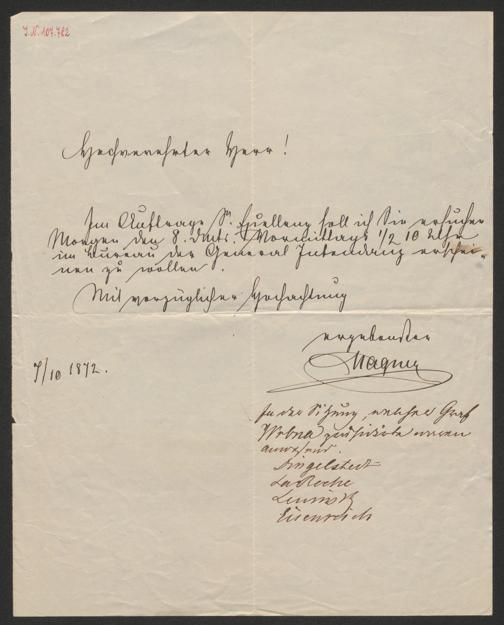 I.N. 107.782
Hochverehrter Herr!
Im Auftrage Sr. Exzellenz soll ich Sie ersuchen
Morgen den 8. dMts. Vormittags 1/2 10 Uhr
im Bureau der General Intendanz erschei-
nen zu wollen.
Mit vorzüglicher Hochachtung
ergebenster
Wagner
7/10 1872.
In der Sitzung, welcher Graf
Wrbna präsidirte waren
anwesend.
Dingelstedt
LaRoche
Lewinsky
Eisenreich